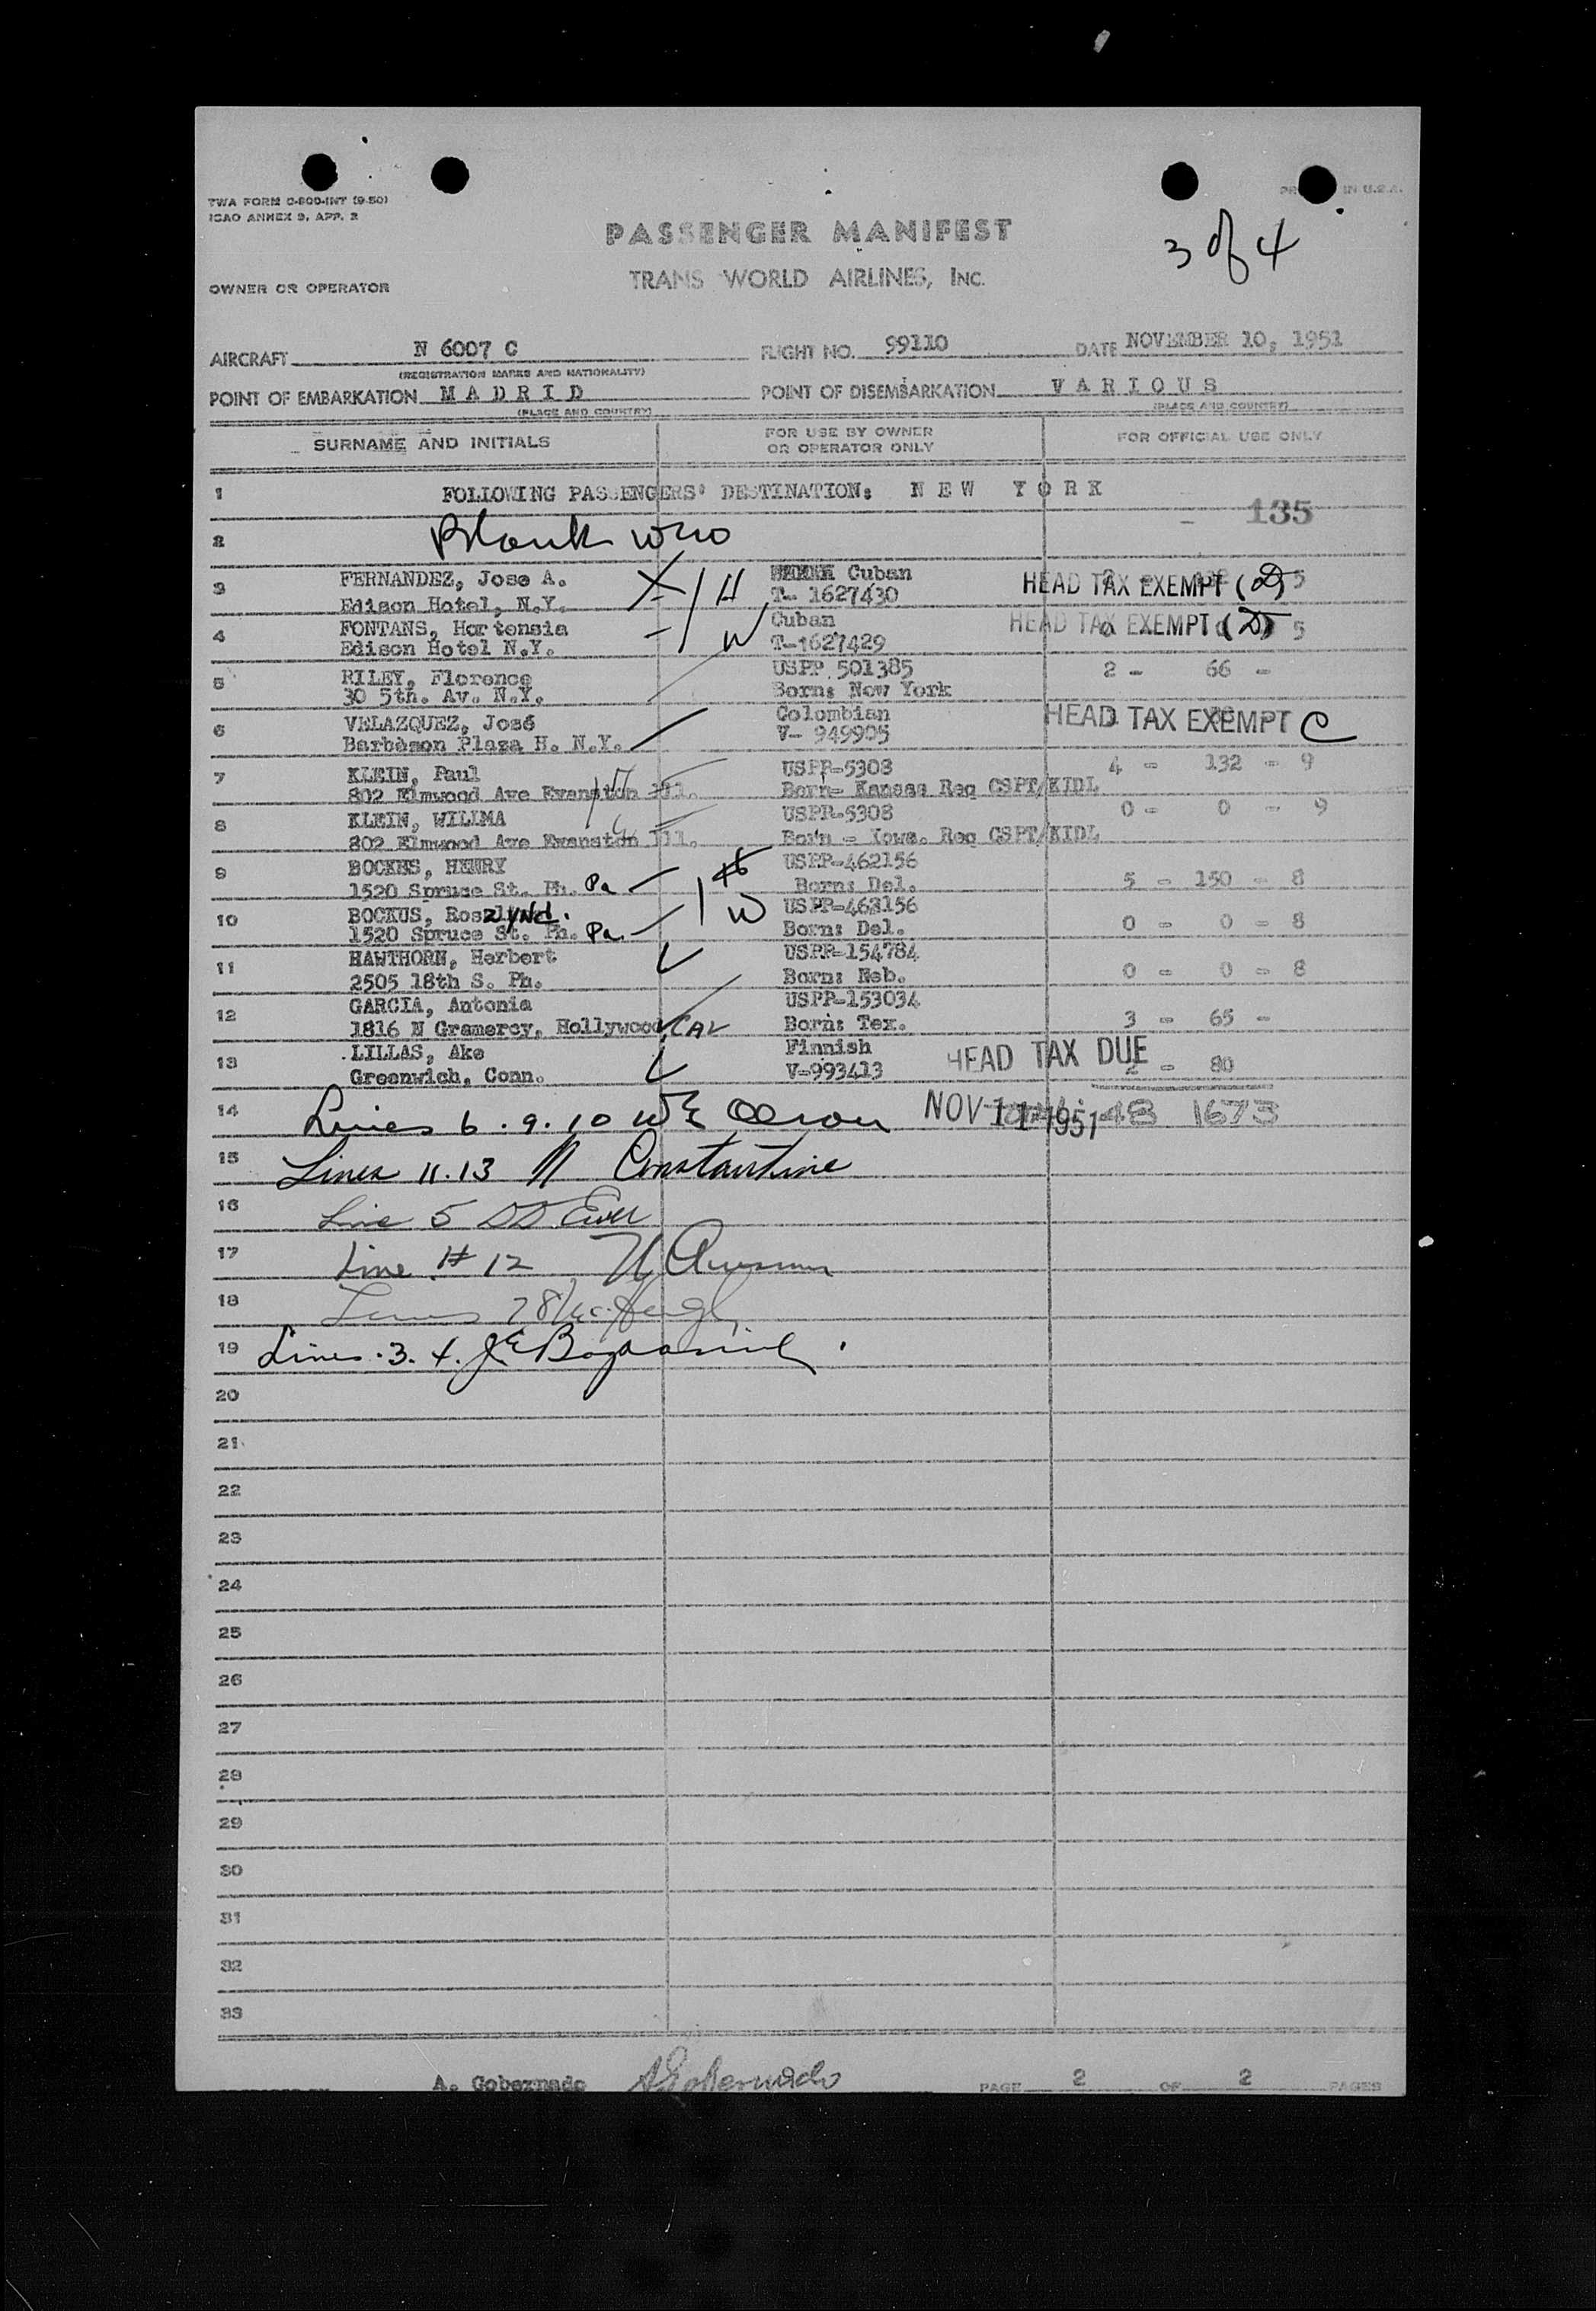 TWA FORM C-800-INT (9-50)
ICAO ANNEX 9, APP. 2
IN U.S.A.
PASSENGER MANIFEST
3 of 4
TRANS WORLD AIRLINES, INC.
OWNER OR OPERATOR
AIRCRAFT N 6007 C FLIGHT NO. 99110 DATE NOVEMBER 10, 1951
(REGISTRATION MARKS AND NATIONALITY)
POINT OF EMBARKATION M A D R I D POINT OF DISEMBARKATION V A R I O U S
(PLACE AND COUNTRY) (PLACE AND COUNTRY)
SURNAME AND INITIALS FOR USE BY OWNER OR OPERATOR ONLY FOR OFFICIAL USE ONLY
1 FOLLOWING PASSENGERS' DESTINATION: N E W Y O R K
135
2
3 FERNANDEZ, Jose A. H Cuban HEAD TAX EXEMPT (D) 5
Edison Hotel, N.Y. T- 1627430
4 FONTANS, Hortensia W Cuban HEAD TAX EXEMPT (D) 5
Edison Hotel N.Y. T-1627429
5 RILEY, Florence USPP 501385 2 - 66 -
30 5th. Av. N.Y. Born: New York
6 VELAZQUEZ, José Colombian HEAD TAX EXEMPT C
Barbàmon Plaza H. N.Y. V- 949905
7 KLEIN, Paul USPP-5308 4 - 132 - 9
802 Elmwood Ave Evanston Ill. Born- Kansas Req CSPT/KIDL
8 KLEIN, WILIMA USPP-5308 0 - 0 - 9
802 Elmwood Ave Evanston Ill. Born - Iowa. Req CSPT/KIDL
9 BOCKES, HENRY H USPP-462156 5 - 150 - 8
1520 Spruce St. Ph. Pa Born: Del.
10 BOCKUS, Rosalynd. W USPP-462156 0 - 0 - 8
1520 Spruce St. Ph. Pa. Born: Del.
11 HAWTHORN, Herbert USPP-154784 0 - 0 - 8
2505 18th S. Ph. Born: Neb.
12 GARCIA, Antonia USPP-153034 3 - 65 -
1816 N Gramercy, Hollywood, CAL Born: Tex.
13 LILLAS, Ake Finnish HEAD TAX DUE 80
Greenwich, Conn. V-993413
14 Lines 6. 9. 10 NOV 11 1951 48 1673
15 Lines 11. 13 N Constantine
16 Line 5
17 Line # 12
18 Lines 7 8
19 Lines. 3. 4.
20
21
22
23
24
25
26
27
28
29
30
31
32
33
A. Gobernado AGobernado PAGE 2 OF 2 PAGES